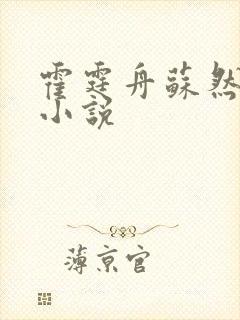 霍霆舟蘇然
小說
薄京官